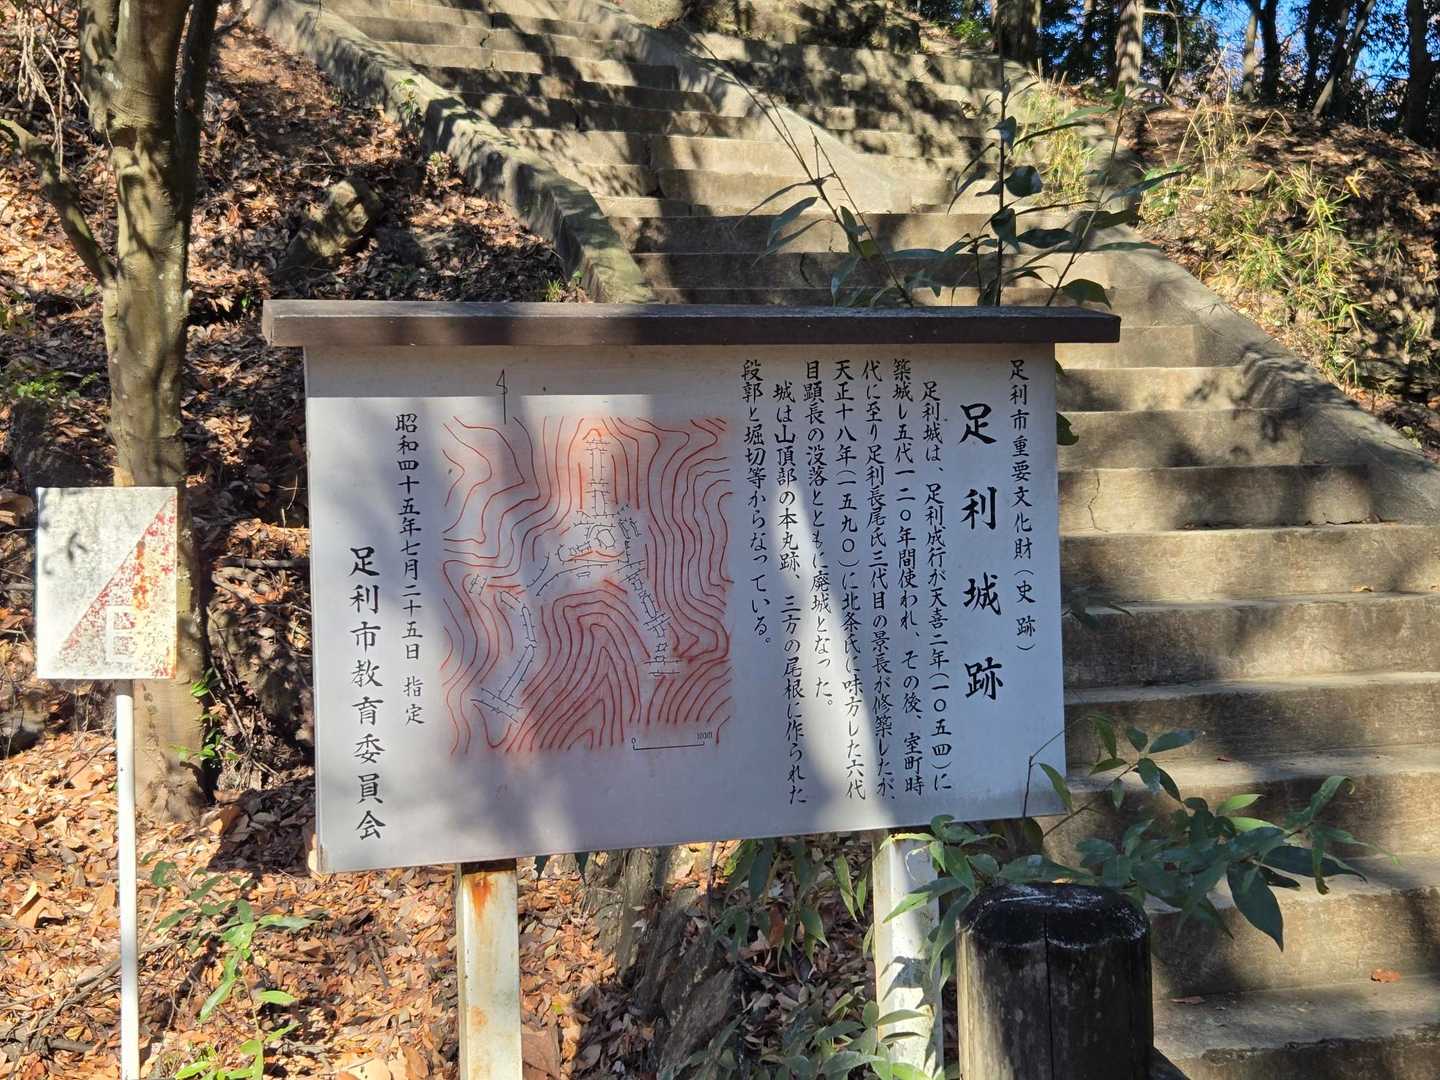 足利市重要文化財（史跡）
足利城跡
足利城は、足利成行が天喜二年（一〇五四）に
築城し五代一二〇年間使われ、その後、室町時
代に至り足利長尾氏三代目の景長が修築したが、
天正十八年（一五九〇）に北条氏に味方した六代
目顕長の没落とともに廃城となった。
城は山頂部の本丸跡、三方の尾根に作られた
段郭と堀切等からなっている。
0 100m
昭和四十五年七月二十五日 指定
足利市教育委員会